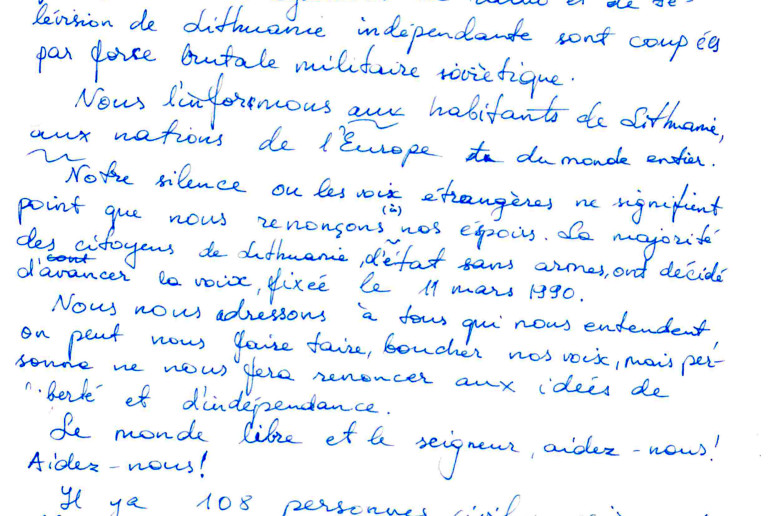 et de té-
lévision de Lithuanie indépendante sont coupées
par force brutale militaire soviétique.
Nous l'informons aux habitants de Lithuanie,
aux nations de l'Europe du monde entier.
Notre silence ou les voix étrangères ne signifient
point que nous renonçons (à) nos espoirs. La majorité
des citoyens de Lithuanie, d'état sans armes, ont décidé
d'avancer la voix, fixée le 11 mars 1990.
Nous nous adressons à tous qui nous entendent
on peut nous faire taire, boucher nos voix, mais per-
sonne ne nous fera renoncer aux idées de
berté et d'indépendance.
Le monde libre et le seigneur, aidez-nous!
Aidez-nous!
Il ya 108 personnes